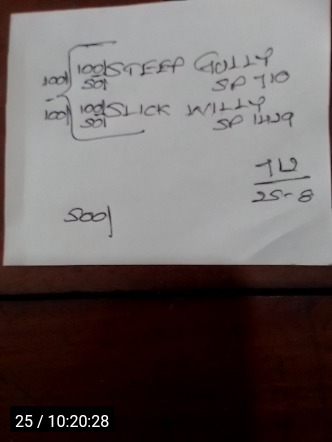 100/ 100/ STEEP GULLY
50/ SP 7/10
100/ 100/ SLICK WILLY
50/ SP 14/29
TU
25-8
500/
25 / 10:20:28